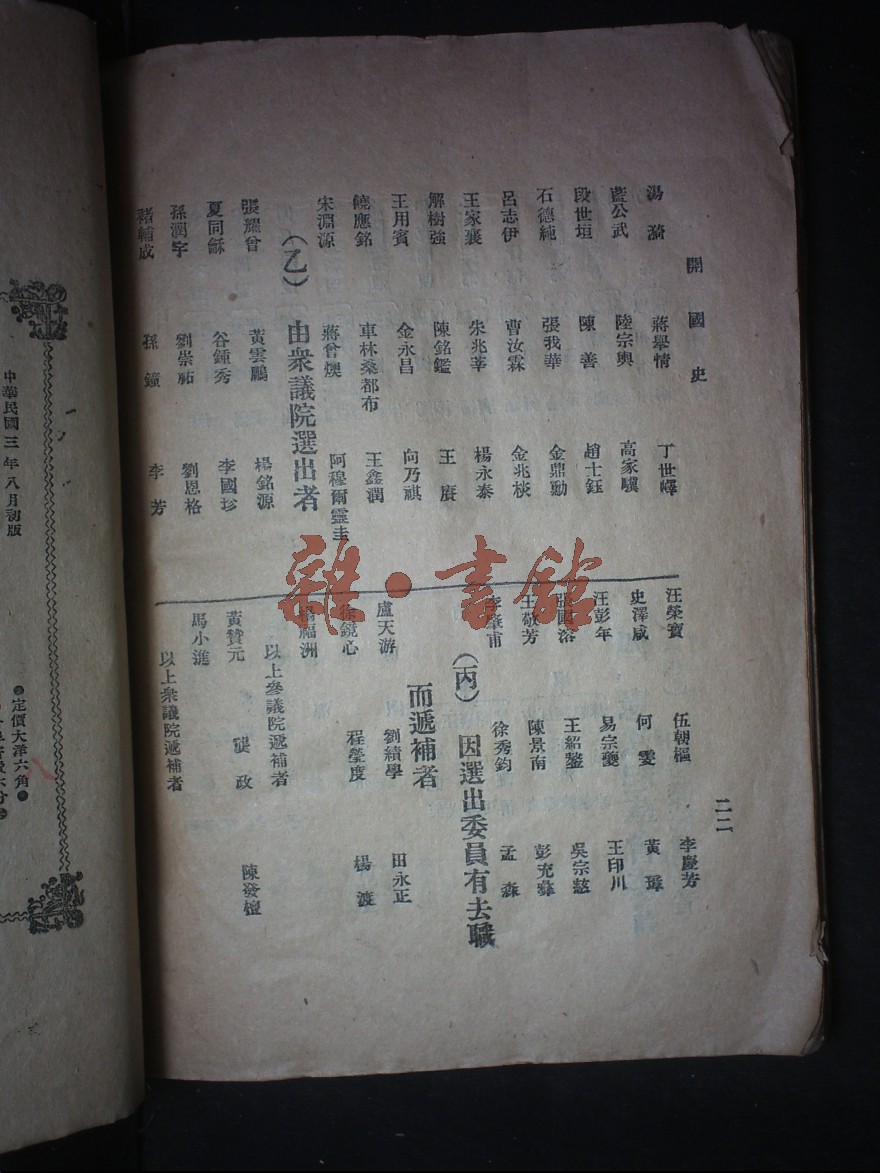 開國史
二二
湯漪 蔣舉情 丁世嶧
藍公武 陸宗輿 高家驥
段世垣 陳善 趙士鈺
石德純 張我華 金鼎勳
呂志伊 曹汝霖 金兆棪
王家襄 朱兆莘 楊永泰
解樹強 陳銘鑑 王賡
王用賓 金永昌 向乃祺
饒應銘 車林桑都布 王鑫潤
宋淵源 蔣曾燠 阿穆爾靈圭
(乙)由衆議院選出者
張耀曾 黃雲鵬 楊銘源
夏同龢 谷鍾秀 李國珍
孫潤宇 劉崇祐 劉恩格
褚輔成 孫鐘 李芳
汪榮寶 伍朝樞 李慶芳
史澤咸 何雯 黃璋
汪彭年 易宗夔 王印川
張國溶 王紹鏊 吳宗慈
王敬芳 陳景南 彭允彝
李肇甫 徐秀鈞 孟森
(丙)因選出委員有去職
而遞補者
盧天游 劉績學 田永正
徐鏡心 程瑩度 楊渡
楊福洲
以上參議院遞補者
黃贊元 龔政 陳發檀
馬小進
以上衆議院遞補者
中華民國三年八月初版
●定價大洋六角●
雜·書館